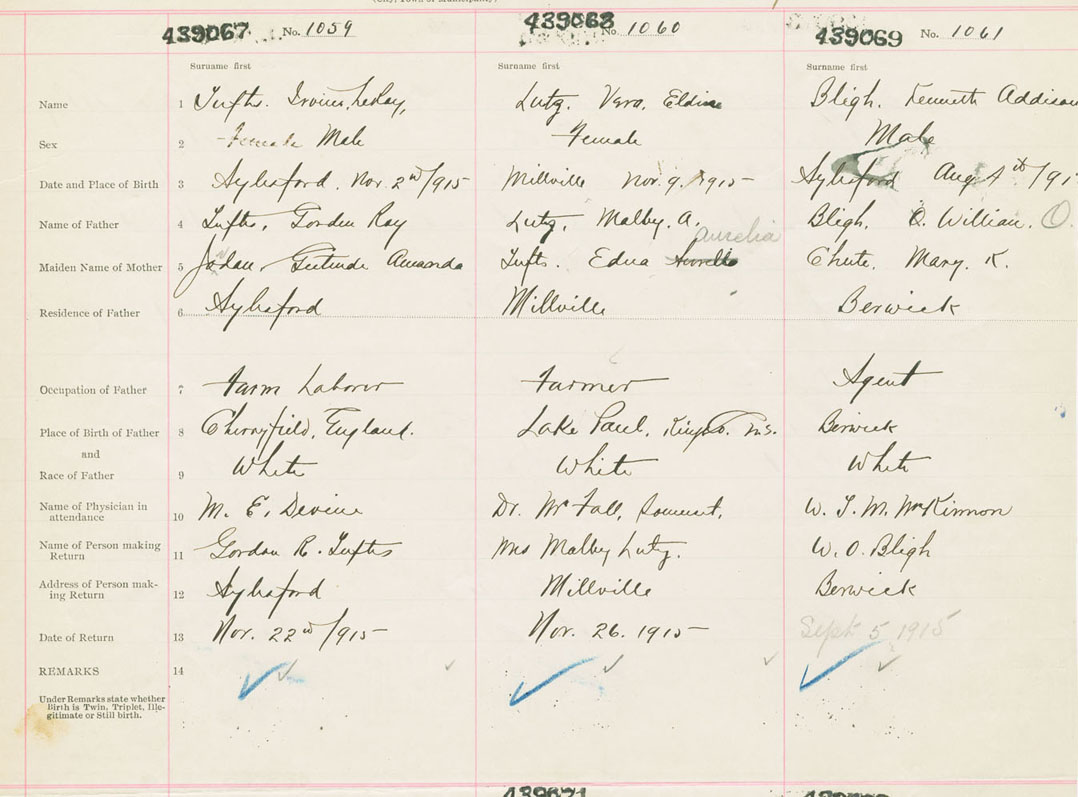 439067 No. 1059 439068 No. 1060 439069 No. 1061
Surname first Surname first Surname first
Name 1 Tufts. Irvine, LeRoy, Lutz. Vera. Eldine Bligh. Kenneth Addison
Sex 2 Female Male Female Male
Date and Place of Birth 3 Aylesford. Nov. 2nd/915 Millville Nov. 9. 1915 Aylesford Aug 4th/91
Name of Father 4 Tufts, Gorden Ray Lutz, Malby. A. Bligh. O. William. O.
aurelia
Maiden Name of Mother 5 Gertrude Amanda Tufts. Edna Chute. Mary. K.
Residence of Father 6 Aylesford Millville Berwick
Occupation of Father 7 Farm Laborer Farmer Agent
Place of Birth of Father 8 Cherryfield, England. Lake Paul, Kings Co. N.S. Berwick
and
Race of Father 9 White White White
Name of Physician in attendance 10 M. E. Devine Dr. Somerset, W. T. M. McKinnon
Name of Person making Return 11 Gordon R. Tufts Mrs Malby Lutz. W. O. Bligh
Address of Person making Return 12 Aylesford Millville Berwick
Date of Return 13 Nov. 22nd/915 Nov. 26. 1915 Sept 5 1915
REMARKS 14
Under Remarks state whether
Birth is Twin, Triplet, Ille-
gitimate or Still birth.
439071